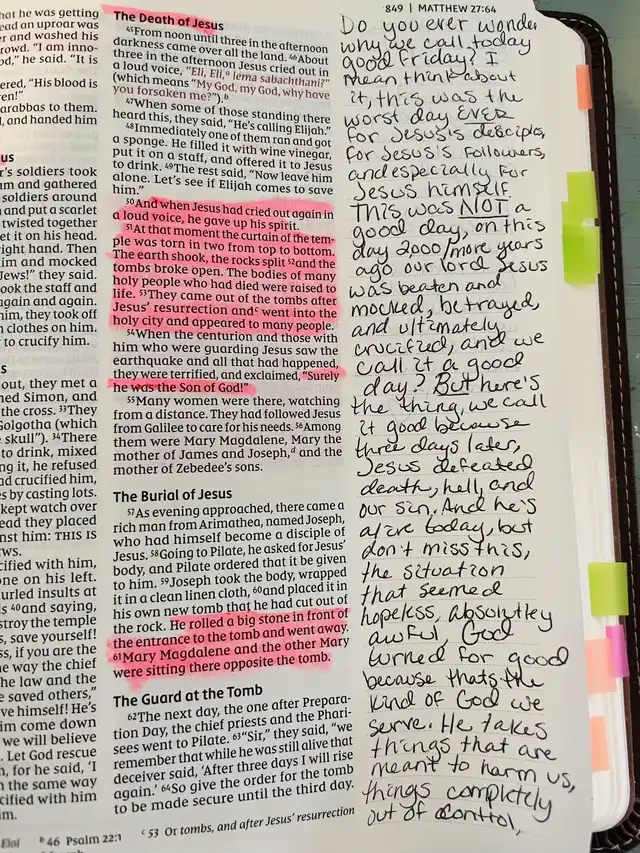 849 | MATTHEW 27:64
hat he was getting
ead an uproar was
er and washed his
rowd. "I am inno-
od," he said. "It is
ered, "His blood is
ren!"
arabbas to them.
l, and handed him
us
r's soldiers took
m and gathered
soldiers around
and put a scarlet
twisted together
et it on his head.
right hand. Then
im and mocked
Jews!" they said.
ook the staff and
again and again.
him, they took off
n clothes on him.
to crucify him.
s
out, they met a
med Simon, and
the cross. 33They
Golgotha (which
skull"). 34There
to drink, mixed
ng it, he refused
ad crucified him,
es by casting lots.
kept watch over
ead they placed
nst him: THIS IS
WS.
cified with him,
one on his left.
urled insults at
s 40and saying,
stroy the temple
s, save yourself!
ss, if you are the
me way the chief
he law and the
e saved others,"
ve himself! He's
im come down
we will believe
. Let God rescue
n, for he said, 'I
n the same way
cified with him
im.
The Death of Jesus
45From noon until three in the afternoon
darkness came over all the land. 46About
three in the afternoon Jesus cried out in
a loud voice, "Eli, Eli,a lema sabachthani?"
(which means "My God, my God, why have
you forsaken me?").b
47When some of those standing there
heard this, they said, "He's calling Elijah."
48Immediately one of them ran and got
a sponge. He filled it with wine vinegar,
put it on a staff, and offered it to Jesus
to drink. 49The rest said, "Now leave him
alone. Let's see if Elijah comes to save
him."
50And when Jesus had cried out again in
a loud voice, he gave up his spirit.
51At that moment the curtain of the tem-
ple was torn in two from top to bottom.
The earth shook, the rocks split 52and the
tombs broke open. The bodies of many
holy people who had died were raised to
life. 53They came out of the tombs after
Jesus' resurrection andc went into the
holy city and appeared to many people.
54When the centurion and those with
him who were guarding Jesus saw the
earthquake and all that had happened,
they were terrified, and exclaimed, "Surely
he was the Son of God!"
55Many women were there, watching
from a distance. They had followed Jesus
from Galilee to care for his needs. 56Among
them were Mary Magdalene, Mary the
mother of James and Joseph,d and the
mother of Zebedee's sons.
The Burial of Jesus
57As evening approached, there came a
rich man from Arimathea, named Joseph,
who had himself become a disciple of
Jesus. 58Going to Pilate, he asked for Jesus'
body, and Pilate ordered that it be given
to him. 59Joseph took the body, wrapped
it in a clean linen cloth, 60and placed it in
his own new tomb that he had cut out of
the rock. He rolled a big stone in front of
the entrance to the tomb and went away.
61Mary Magdalene and the other Mary
were sitting there opposite the tomb.
The Guard at the Tomb
62The next day, the one after Prepara-
tion Day, the chief priests and the Phari-
sees went to Pilate. 63"Sir," they said, "we
remember that while he was still alive that
deceiver said, 'After three days I will rise
again.' 64So give the order for the tomb
to be made secure until the third day.
Eloi b 46 Psalm 22:1 c 53 Or tombs, and after Jesus' resurrection
Do you ever wonder
why we call today
good Friday? I
mean think about
it, this was the
worst day EVER
for Jesus's desciples,
for Jesus's followers,
and especially for
Jesus himself.
This was NOT a
good day, on this
day 2,000/more years
ago our lord Jesus
was beaten and
mocked, betrayed,
and ultimately
crucified, and we
call it a good
day? But here's
the thing, we call
it good because
three days later,
Jesus defeated
death, hell, and
our sin. And he's
alive today, but
don't miss this,
the situation
that seemed
hopeless, absolutley
awful, God
turned for good
because thats the
kind of God we
serve. He takes
things that are
meant to harm us,
things completely
out of control,